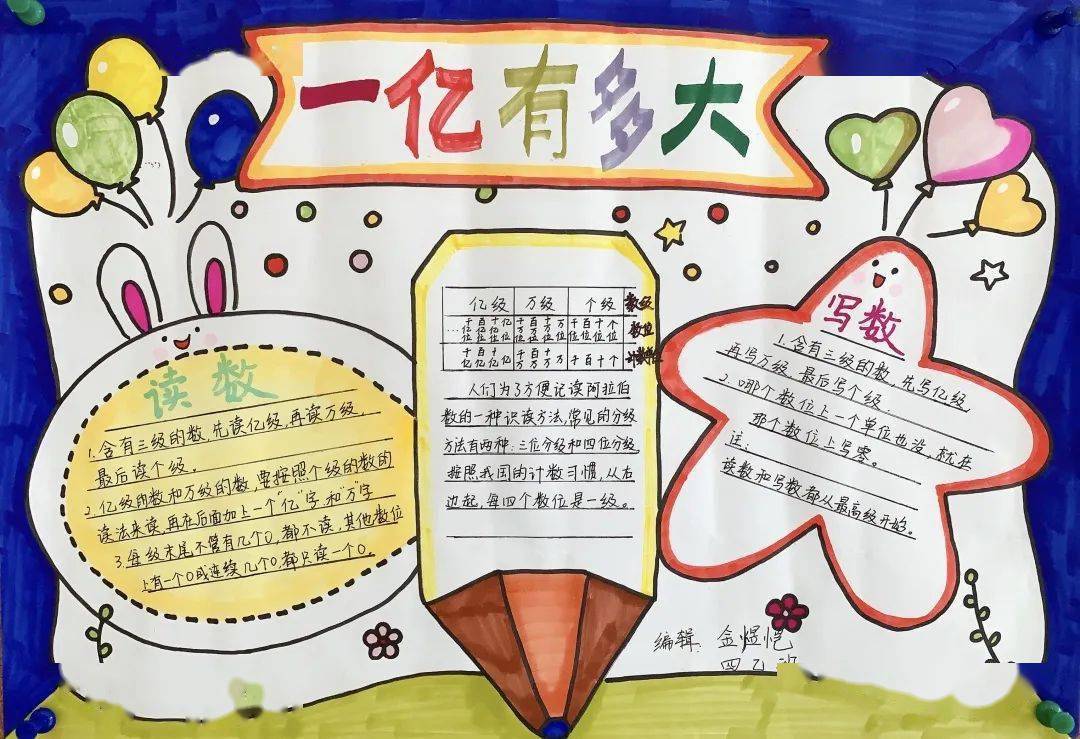 一亿有多大
读数
1.含有三级的数,先读亿级,再读万级,
最后读个级.
2.亿级的数和万级的数,要按照个级的数的
读法来读,再在后面加上一个"亿"字和"万"字
3.每级末尾不管有几个0,都不读,其他数位
上有一个0或连续几个0,都只读一个0.
亿级 万级 个级 数级
…千亿位 百亿位 十亿位 亿位 千万位 百万位 十万位 万位 千位 百位 十位 个位 数位
千亿 百亿 十亿 亿 千万 百万 十万 万 千 百 十 个
人们为了方便记读阿拉伯
数的一种识读方法,常见的分级
方法有两种:三位分级和四位分级
按照我国的计数习惯,从右
边起,每四个数位是一级。
写数
1.含有三级的数,先写亿级
再写万级 最后写个级.
2.哪个数位上一个单位也没,就在
那个数位上写零。
注:
读数和写数都从最高级开始.
编辑:金煜恺
四乙班